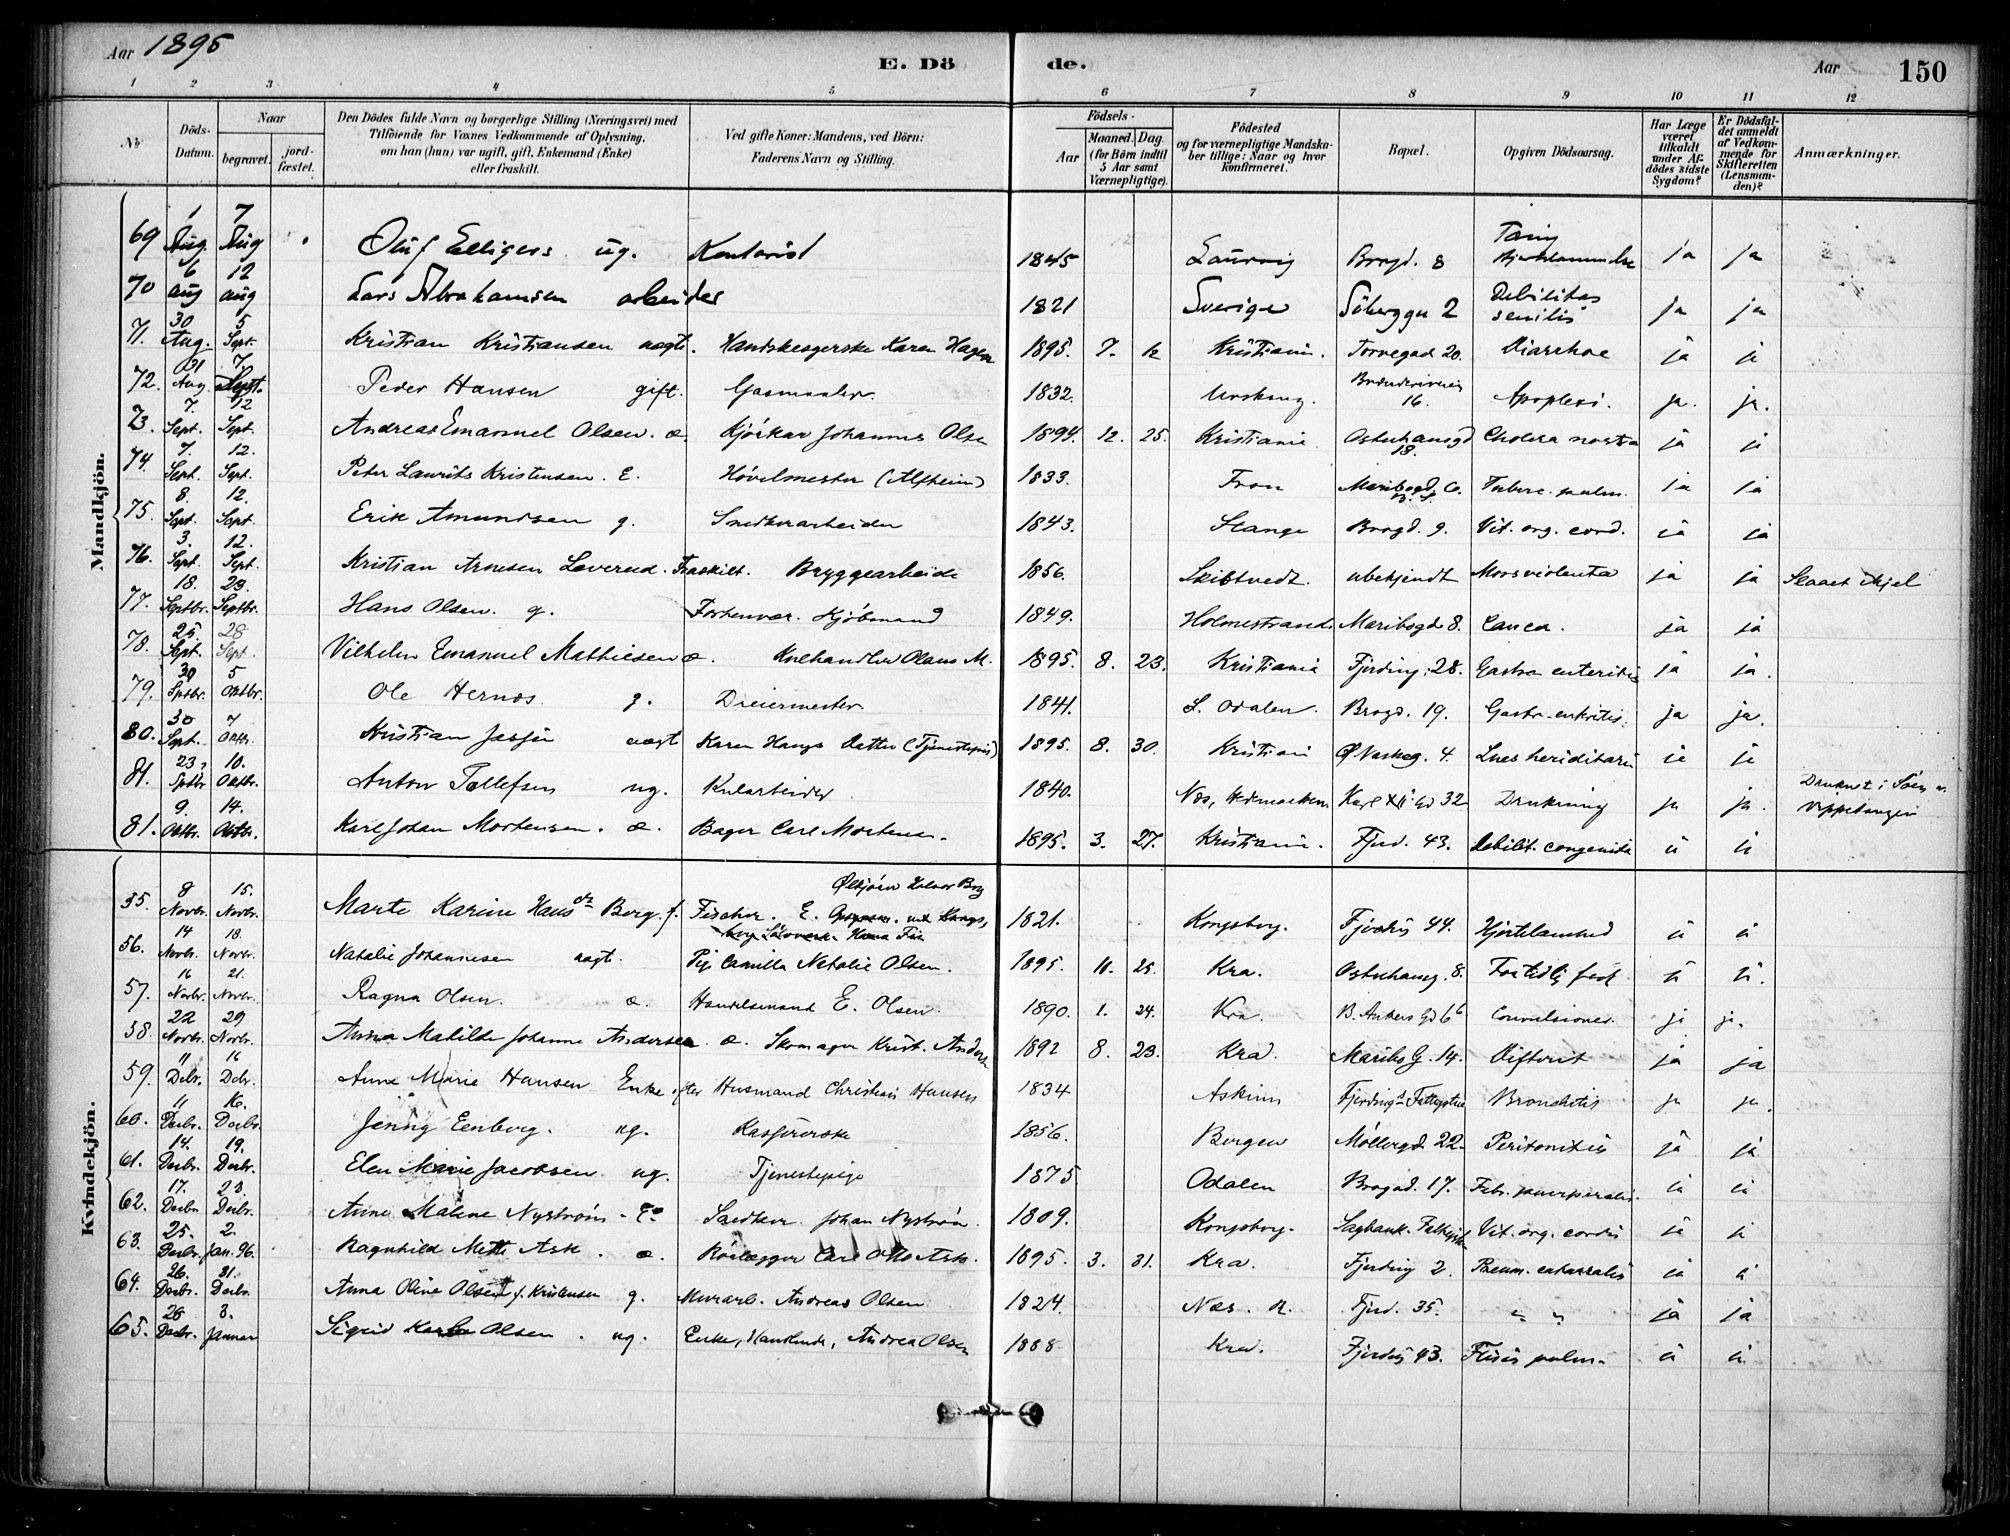 Aar 1895 E. Dö de. Aar 150
1 2 3 4 5 6 7 8 9 10 11 12
No Döds-Datum. Naar begravet. jord-fæstet. Den Dödes fulde Navn og borgerlige Stilling (Næringsvei) med Tilföiende for Voxnes Vedkommende af Oplysning, om han (hun) var ugift, gift, Enkemand (Enke) eller fraskilt. Ved gifte Koner: Mandens, ved Börn: Faderens Navn og Stilling. Födsels- Aar Maaned. Dag. (for Börn indtil 5 Aar samt Værnepligtige). Födested og for værnepligtige Mandskaber tillige: Naar og hvor konfirmeret. Bopæl. Opgiven Dödsaarsag. Har Læge været tilkaldt under Afdödes sidste Sygdom? Er Dödsfaldet anmeldt af Vedkommende for Skifteretten (Lensmanden)? Anmærkninger.
Mandkjön.
69 1 Aug. 7 Aug Oluf Elligers ug. Kontorist 1845 Laurvig Brogd. 8 Tæring ja ja
70 6 aug 12 aug Lars Abrahamsen arbeider 1821 Sverige Söberggn 2 Debilitas senilis ja ja
71. 30 Aug. 5 Sept. Kristian Kristiansen uegte. Handskesyerske Karen Hagen 1895. 7. 12 Kristiania. Torvegad 20. Diarrhoe ja ja
72. 31 Aug. 7. Sept. Peder Hansen gift. Gasmaaler 1832. Urskoug. 16. Apoplexi. ja. ja.
73. 7. Sept. 12 Sept. Andreas Emanuel Olsen. æ. Kjörkar Johannes Olse 1894. 12. 25. Kristiania Osterhausgd 18. Cholera nostra ja ja
74. 7. Sept. 12. Sept. Peter Laurits Kristensen. E. Hövelmester (Alfheim) 1833. Fron Maribogd 6. Tuberc. pulm. ja ja
75. 8. Sept. 12. Sept. Erik Amundsen g. Snedkerarbeider 1843. Stange Brogd. 9. Vit. org. cord. ja ja
76. 3. Sept. 12. Sept. Kristian Arnesen Lövereid. Fraskilt. Bryggearbeide 1856. Skibtvedt. ubekjendt Mors violenta ja ja Slaaet ihjel
77. 18. Septbr. 23. Septbr. Hans Olsen. g. Forhenvær. Kjöbmand 1849. Holmestrand. Maribogd 8. Cancer. ja ja
78. 25. Sept. 28 Sept. Vilhelm Emanuel Mathiesen æ. Kulhandler Olaus M. 1895. 8. 23. Kristiania Fjerding. 28. Gastro enteritis ja ja.
79. 30 Sptbr. 5 Oktbr. Ole Hernæs g. Dreiermester 1841. S. Odalen. Brogd. 19. Gastr. enteritis. ja ja.
80. 30 Sept. 7 Oktbr. Kristian uegt Karen Hansdatter (Tjenestepige) 1895. 8. 30. Kristiani Ø Vaskeg. 4. Lues heriditaria ja ja
81. 23? Sptbr 10. Oktbr. Anton Tollefsen ug. Kularbeider 1840. Næs, Hedemarken. Karl XII Gd 32 Drukning ja ja. Druknet i Söen v. Vippetangen
81. 9. Oktbr. 14. Oktbr. Karl Johan Mortensen. æ. Bager Carl Mortensen. 1895. 3. 27. Kristiania. Fjerd. 43. Debilit. congenita ja ja
Kvindekjön.
55. 8 Novbr. 15. Novbr. Marte Karine Hansdr Berg. f. Fischer. E. 1821. Kongsberg. Fjerdig 44. Hjertelamhed ja ja
56. 14 Novbr. 18. Novbr. Natalie Johannesen uegte. Pige Camilla Natalie Olsen. 1895. 10. 25. Kra. Osterhausg. 8. For tidlig födt ja ja.
57. 16 Novbr. 21. Novbr. Ragna Olsen. æ. Handelsmand E. Olsen. 1890. 1. 24. Kra. B. Ankers Gd 6b Convulsioner. ja ja.
58. 22 Novbr. 29 Novbr. Anna Matilde Johanne Andersen. æ. Skomager Krist. Anders 1892 8. 23. Kra. Maribo G. 14. Difterit ja ja
59. 11 Debr. 16 Debr. Anne Marie Hansen Enke efter Husmand Christian Hansen 1834 Askim Bronchitis ja ja.
60. 11 Decbr. 16. Decbr. Jenny Eenberg. ug. Kassererske 1856. Bergen Möllergd 22 Peritonitis ja ja
61. 14. Decbr. 19. Decbr. Elen Marie Jacobsen ug. Tjenestepige 1875 Odalen Brogd. 17. Febr. puerperalis. ja ja
62. 17. Decbr 23. Decbr. Anne Malene Nyström - E. Snedker Johan Nyström. 1809. Kongsberg. Vit. org. cordis ja ja
63. 25. Decbr. 2. Jan. 96. Ragnhild Mette Ask. æ. Rörlægger Carl Otto Ask. 1895. 3. 31. Kra. Fjerding 2. Pneum. catarralis ja ja
64. 26. Decbr. 31. Decbr. Anna Oline Olsen f. Kristensen g. Murarb. Andreas Olsen 1824. Næs. R. Fjerd. 35. " " ja ja
65. 28 Decbr. 3. Januar Sigrid Olsen. ug. Enke, Andrea Olsen 1888 Kra. Fjerdig 43. Ftisis pulm. ja ja